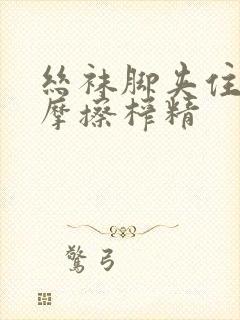 丝袜脚夹住
摩擦榨精
惊弓